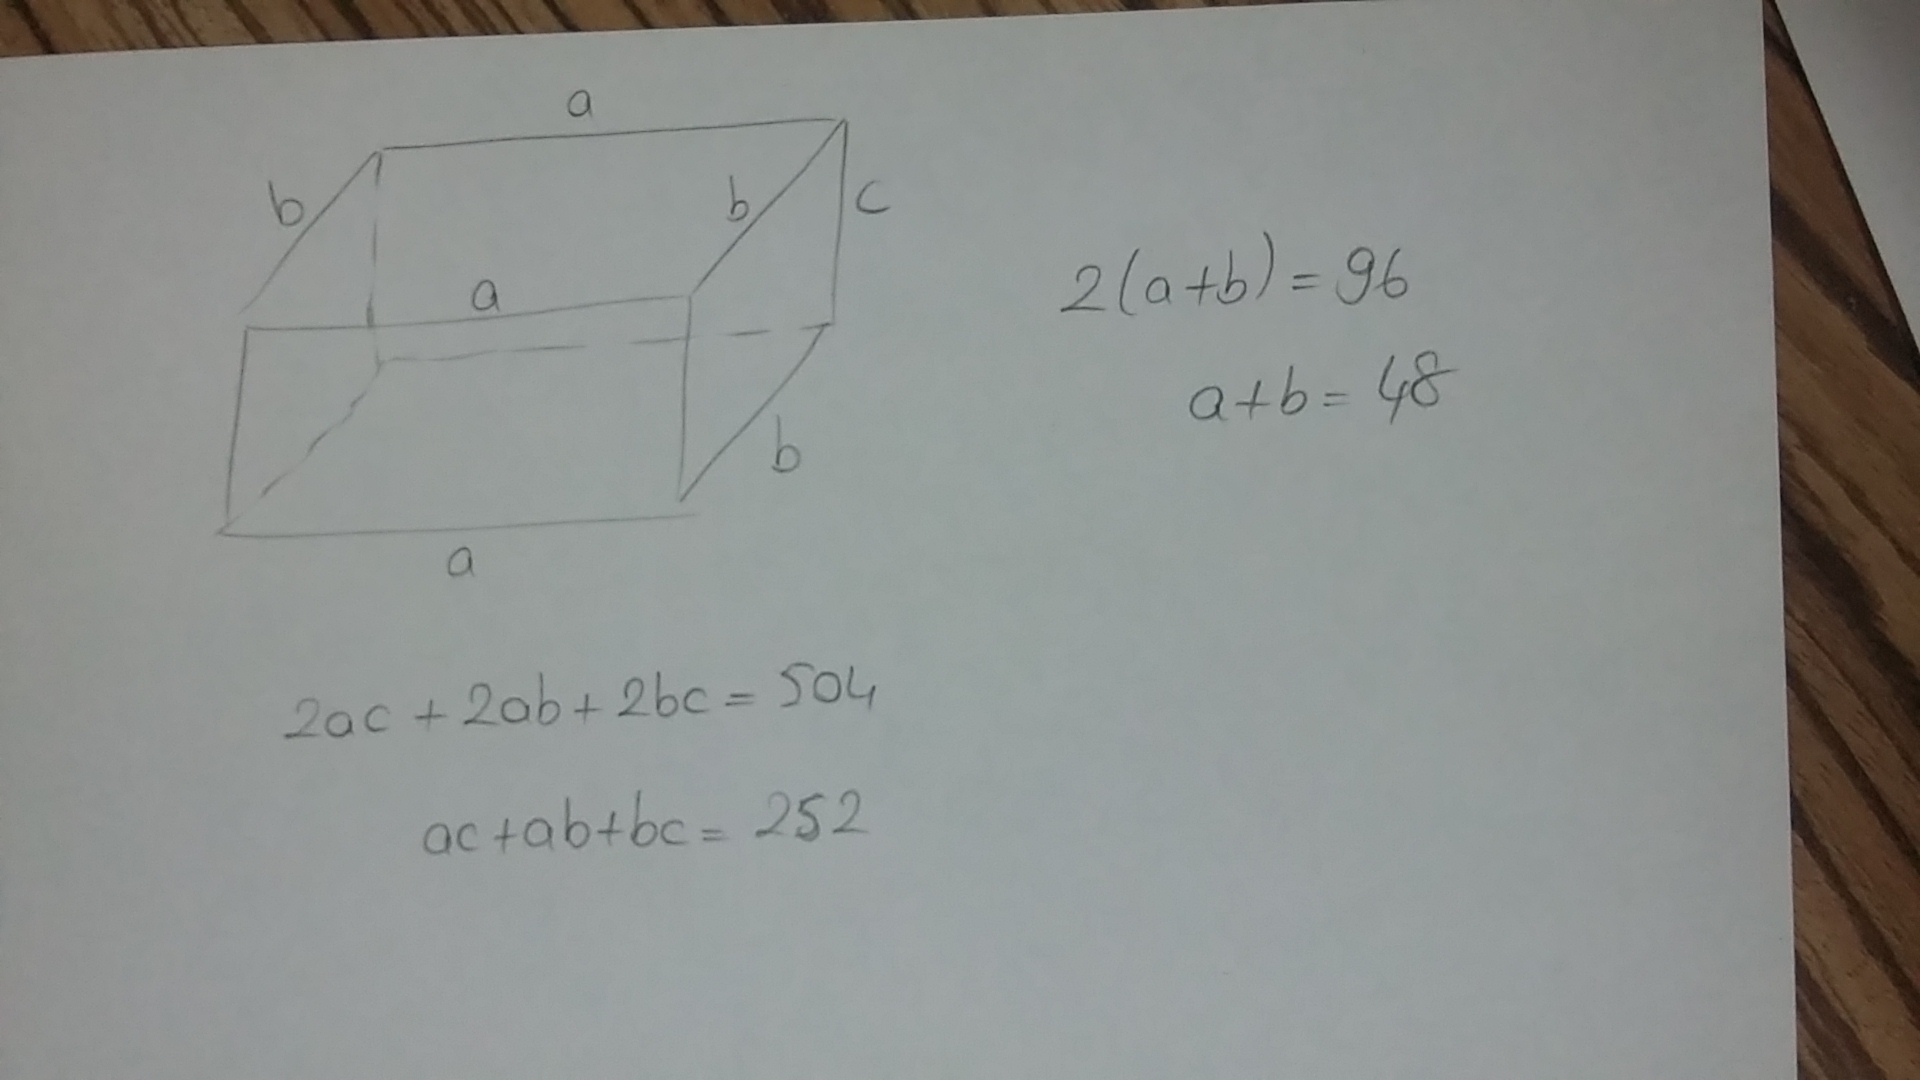 a
b
b
c
a
b
a
2(a+b)=96
a+b=48
2ac+2ab+2bc=504
ac+ab+bc=252